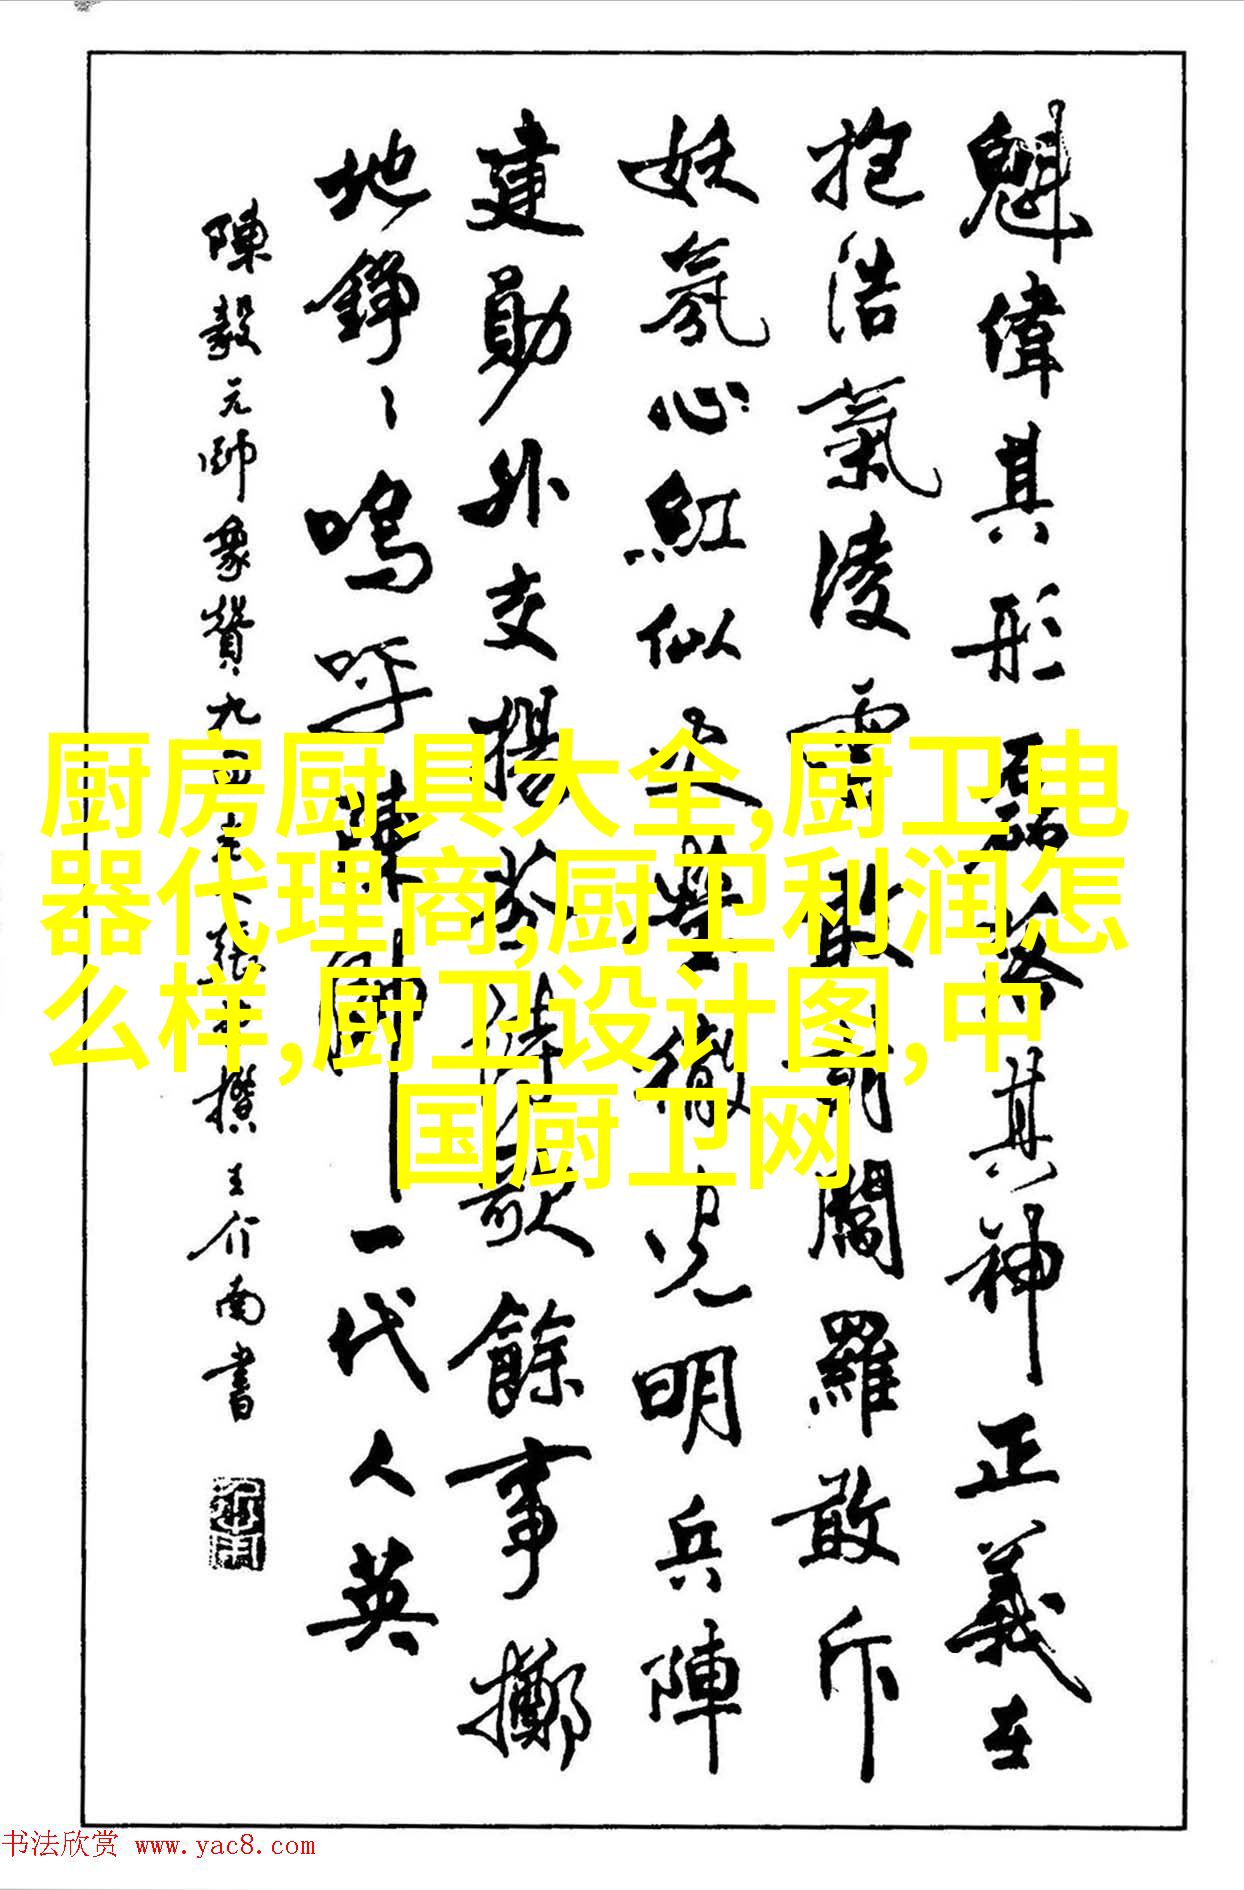 魁偉其形磊落其神正義在
抱浩氣凌雲敢闖羅敢斥
妖氛心紅似火壘徹光明兵陣
建勛外交揚詩歌餘事擲
地錚〻嗚呼陳帥一代人英
陳毅元帥象贊九撰王介南書
厨房厨具大全,厨卫电
器代理商,厨卫利润怎
么样,厨卫设计图,中
国厨卫网
书法欣赏 www.yac8.com